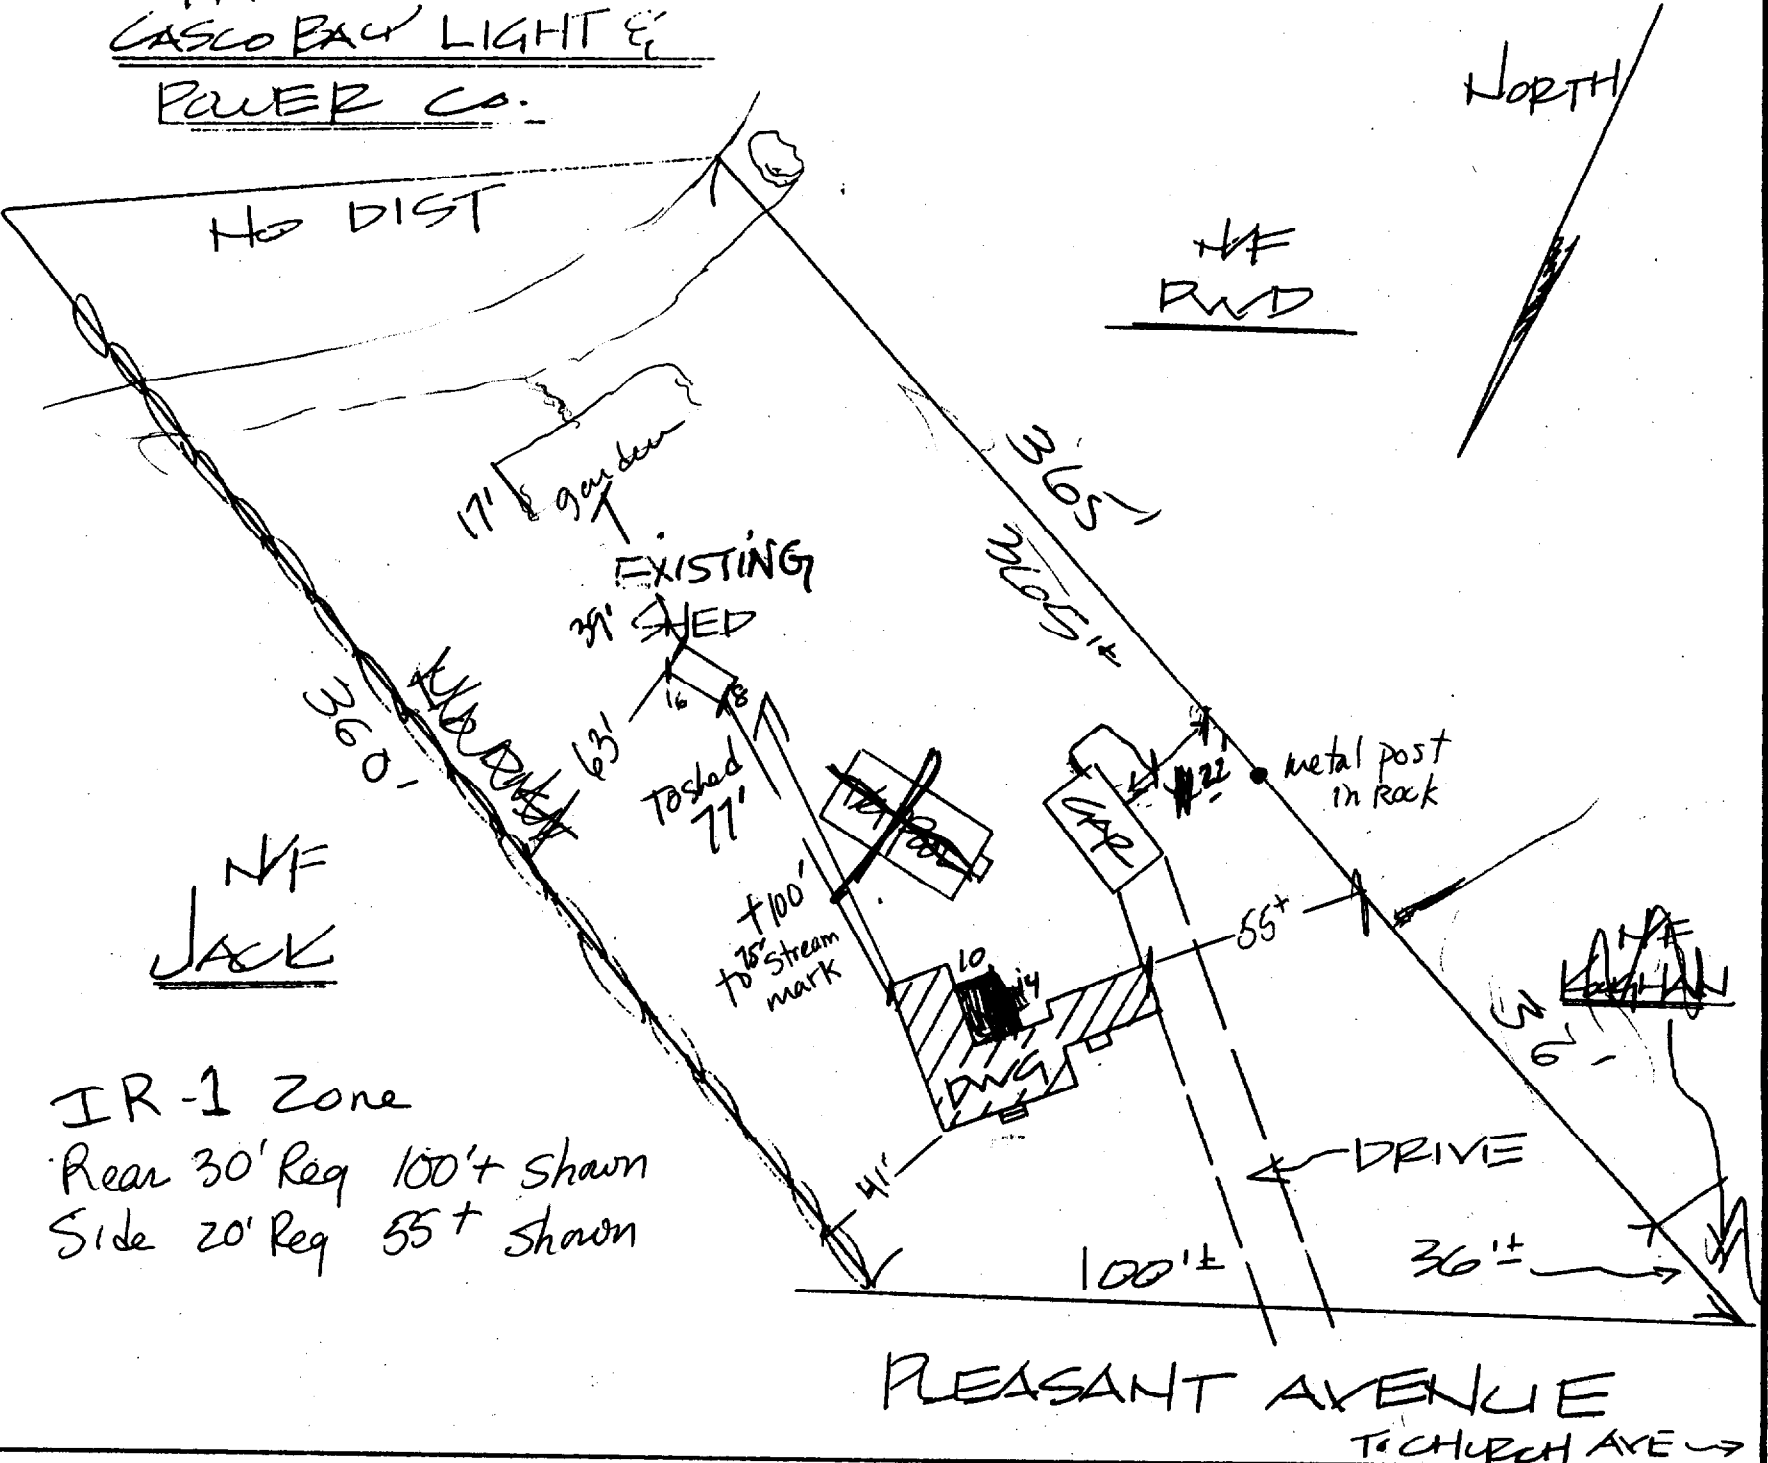 CASCO BAY LIGHT &
POWER CO.
NORTH
NO DIST
N/F
PWD
garden
17'
365'
365'±
EXISTING
SHED
39'
16
8
63'
360'
To shed
77'
GAR
22
metal post
in Rock
N/F
JACK
+100'
to 75' stream
mark
55+
10
14
DWG
N/F
36'
IR-1 Zone
Rear 30' Req 100'+ Shown
Side 20' Req 55+ Shown
41'
DRIVE
100'±
36'±
PLEASANT AVENUE
TO CHURCH AVE →